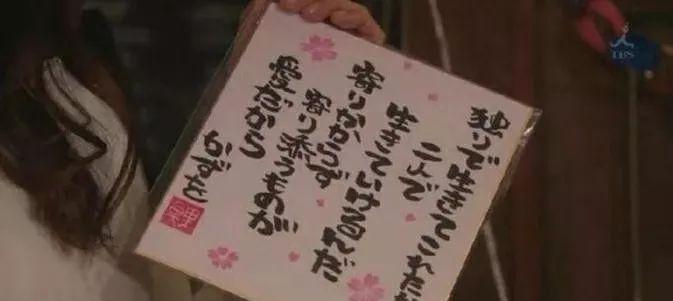 独りで生きてこれた
二人で
生きていけるんだ
寄りかからず
寄り添うものが
愛だから
かずと
TBS